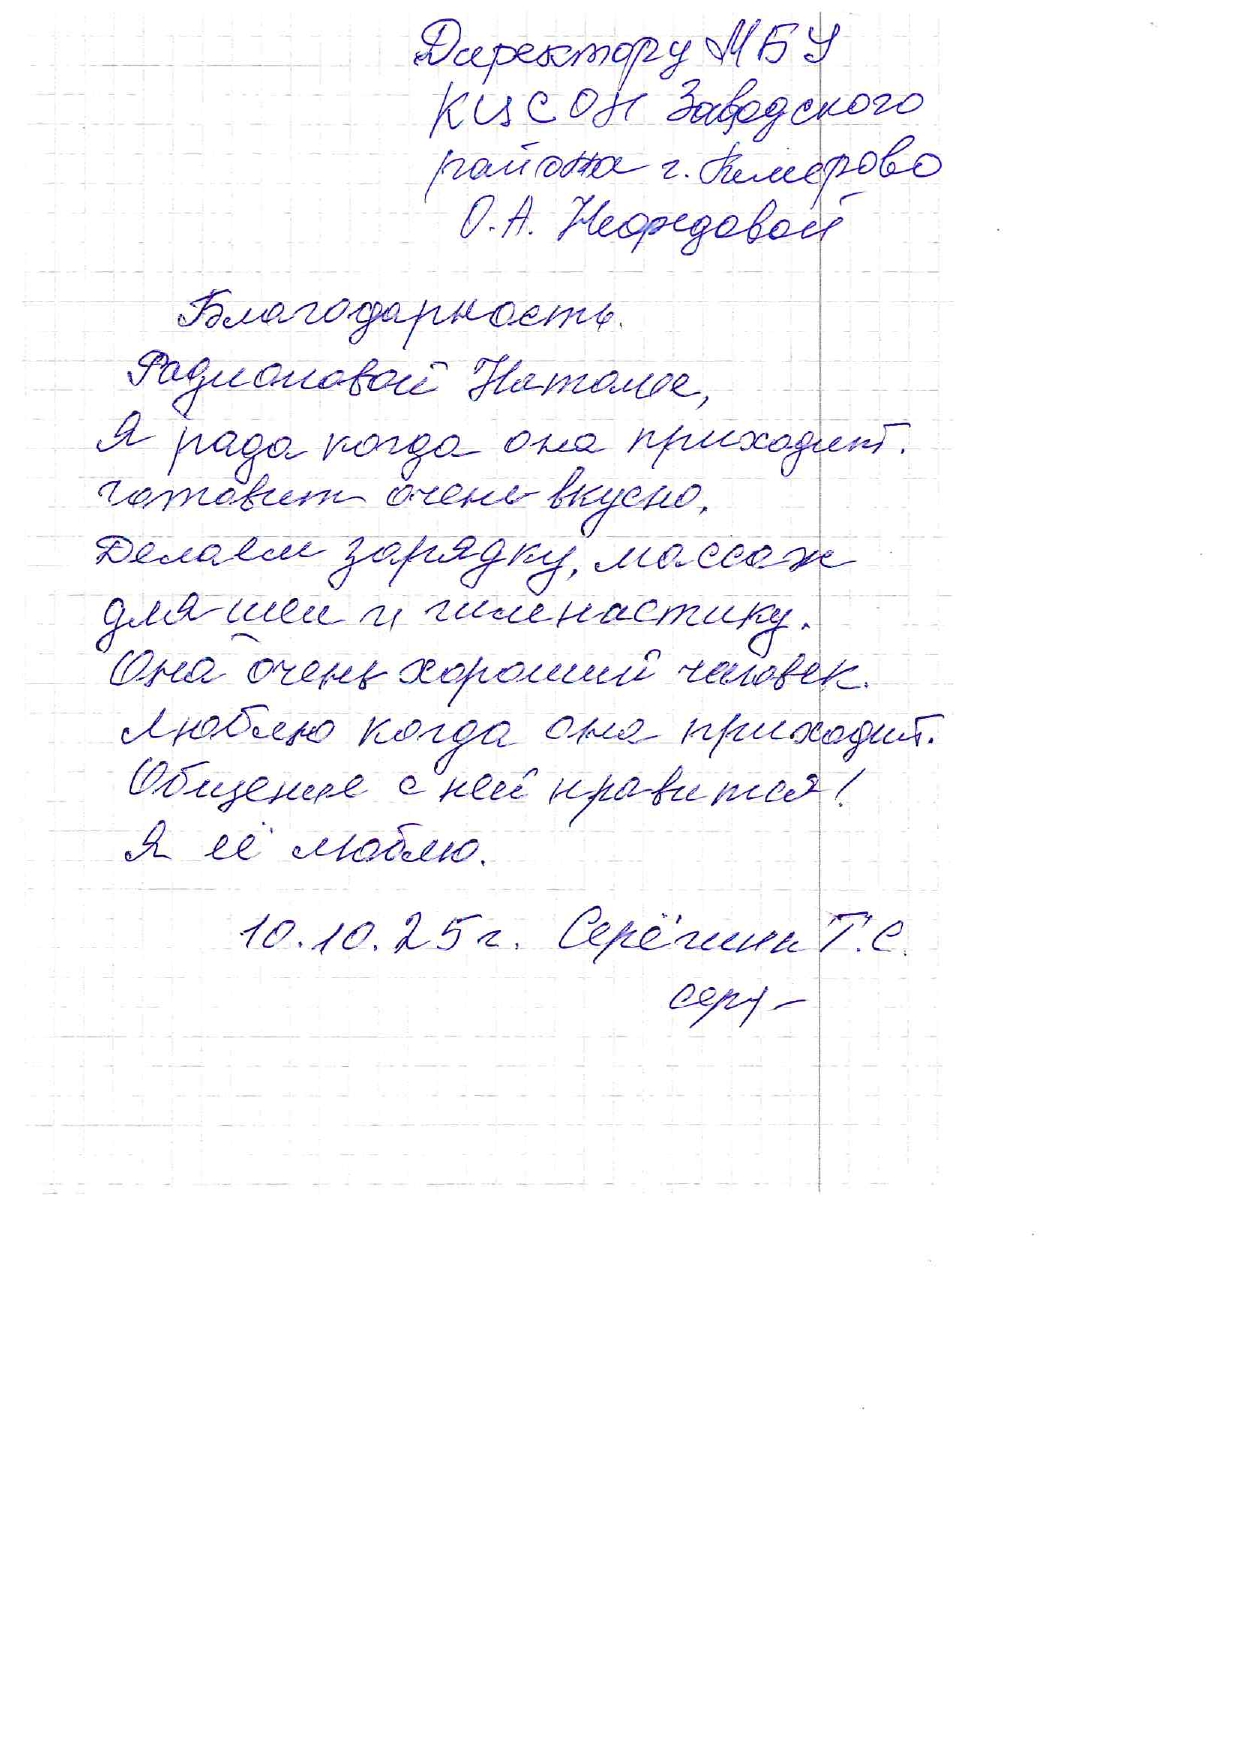 Директору МБУ
КЦСОН Заводского
района г. Кемерово
О.А.
Благодарность.
Радионовой Наталье,
Я рада когда она приходит.
готовит очень вкусно.
Делаем зарядку, массаж
для шеи и гимнастику.
Она очень хороший человек.
Люблю когда она приходит.
Общение с ней нравится!
Я её люблю.
10.10.25г. Серёгина Т.С.